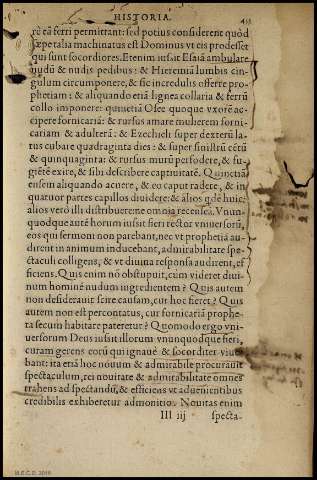 HISTORIA.
rũ eã ferri permittant: sed potius considerent quòd
sæpe talia machinatus est Dominus vt eis prodesset
qui sunt socordiores. Etenim iussit Esaiã ambulare
nudũ & nudis pedibus: & Hieremiã lumbis cin-
gulum circumponere, & sic incredulis offerre pro-
phetiam: & aliquando etiã lignea collaria & ferrũ
collo imponere: quinetiã Osee quoque vxorẽ ac-
cipere fornicariã: & rursus amare mulierem forni-
cariam & adulterã: & Ezechieli super dexterũ la-
tus cubare quadraginta dies: & super sinistrũ cẽtũ
& quinquaginta: & rursus murũ perfodere, & fu-
giẽtẽ exire, & sibi describere captiuitatẽ. Quinetiã
ensem aliquando acuere, & eo caput radere, & in
quatuor partes capillos diuidere: & alios qdẽ huic:
alios verò illi distribuere: ne omnia recenseã. Vnum-
quodque autẽ horum iussit fieri rector vniuersorũ,
eos qui sermoni non parebant, nec vt prophetia au-
dirent in animum inducebant, admirabilitate spe-
ctaculi colligens, & vt diuina responsa audirent, ef-
ficiens. Quis enim nõ obstupuit, cùm videret diui-
num hominẽ nudum ingredientem? Quis autem
non desiderauit scire causam, cur hoc fieret? Quis
autem non est percontatus, cur fornicariã prophe-
ta secum habitare pateretur? Quomodo ergo vni-
uersorum Deus iussit illorum vnumquodque fieri,
curam gerens eorũ qui ignauè & socorditer viue-
bant: ita etiã hoc nouum & admirabile procurauit
spectaculum, rei nouitate & admirabilitate omnes
trahens ad spectandũ, & efficiens vt aduenientibus
credibilis exhiberetur admonitio. Nouitas enim
III iij specta-
M.E.C.D. 2016